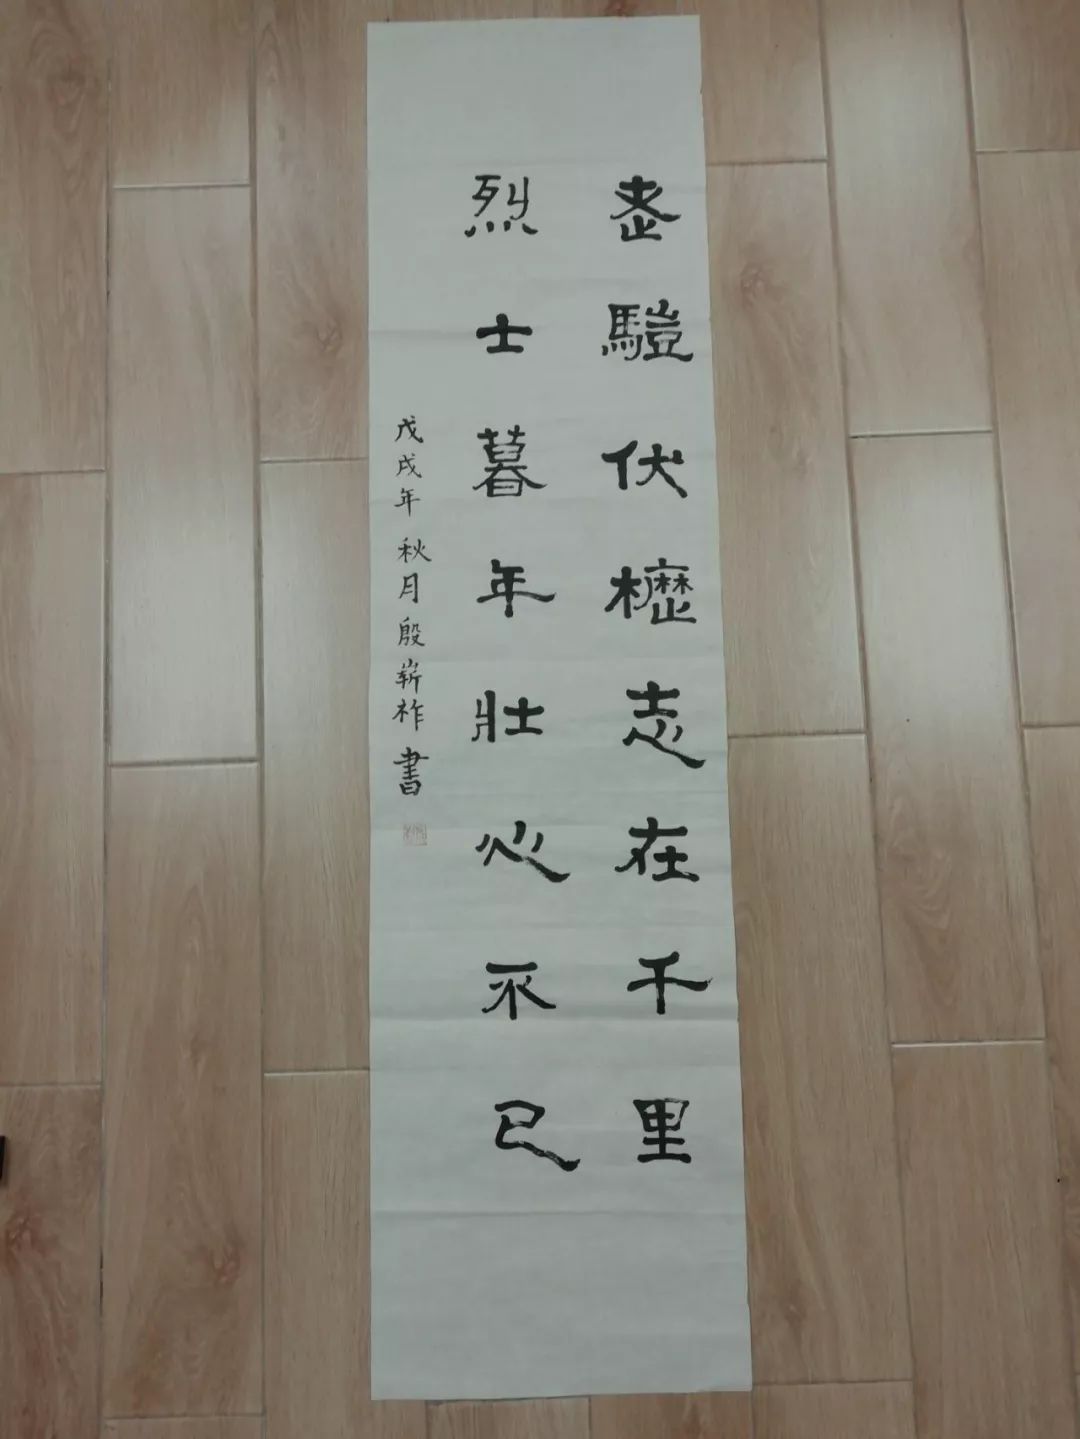 老驥伏櫪志在千里
烈士暮年壯心不已
戊戌年秋月殷崭祚書